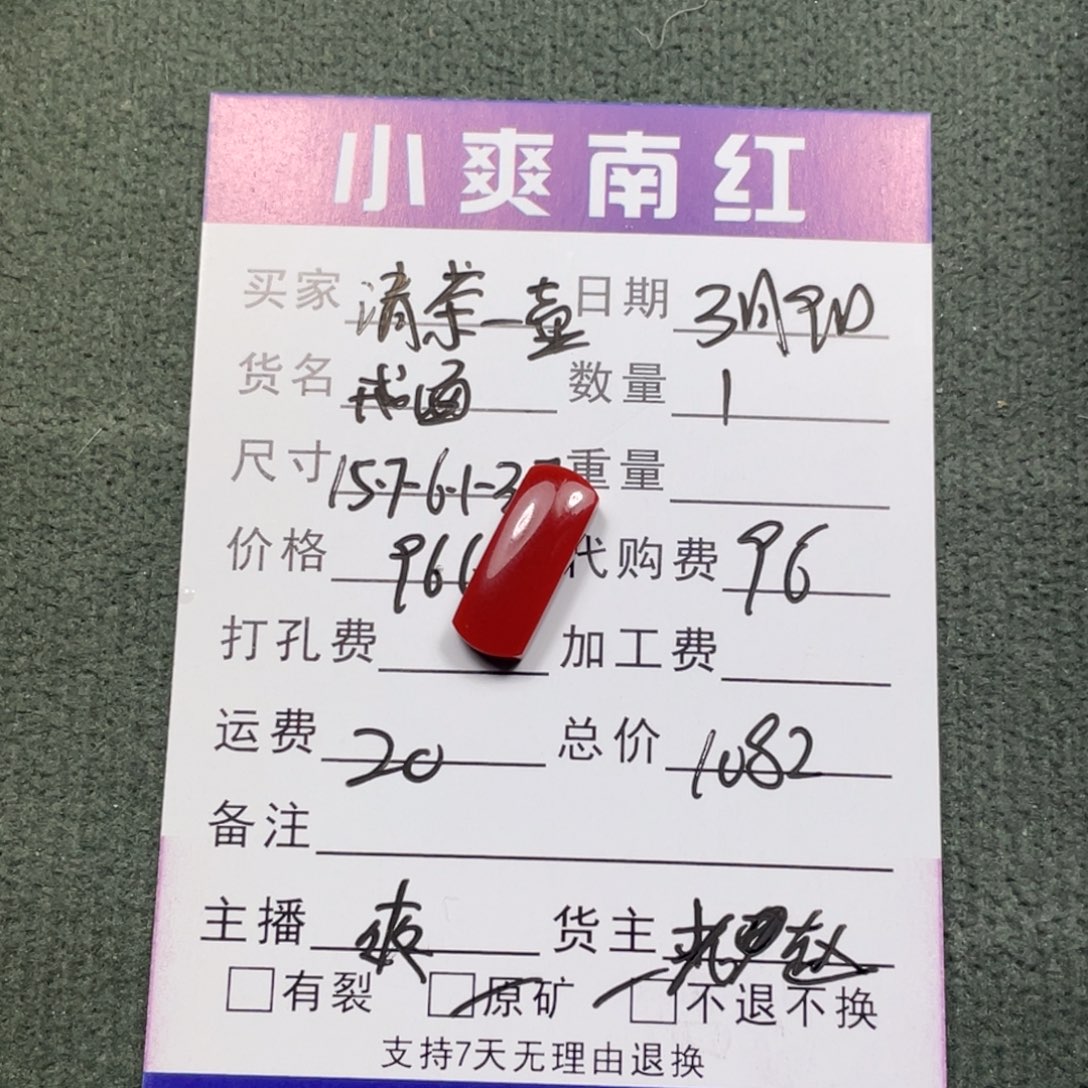 小爽南红
买家 清茶一壶 日期 3月9日
货名 戒面 数量 1
尺寸 15.7-6.1-3 重量
价格 966 代购费 96
打孔费 加工费
运费 20 总价 1082
备注
主播 爽 货主
有裂 原矿 不退不换
支持7天无理由退换